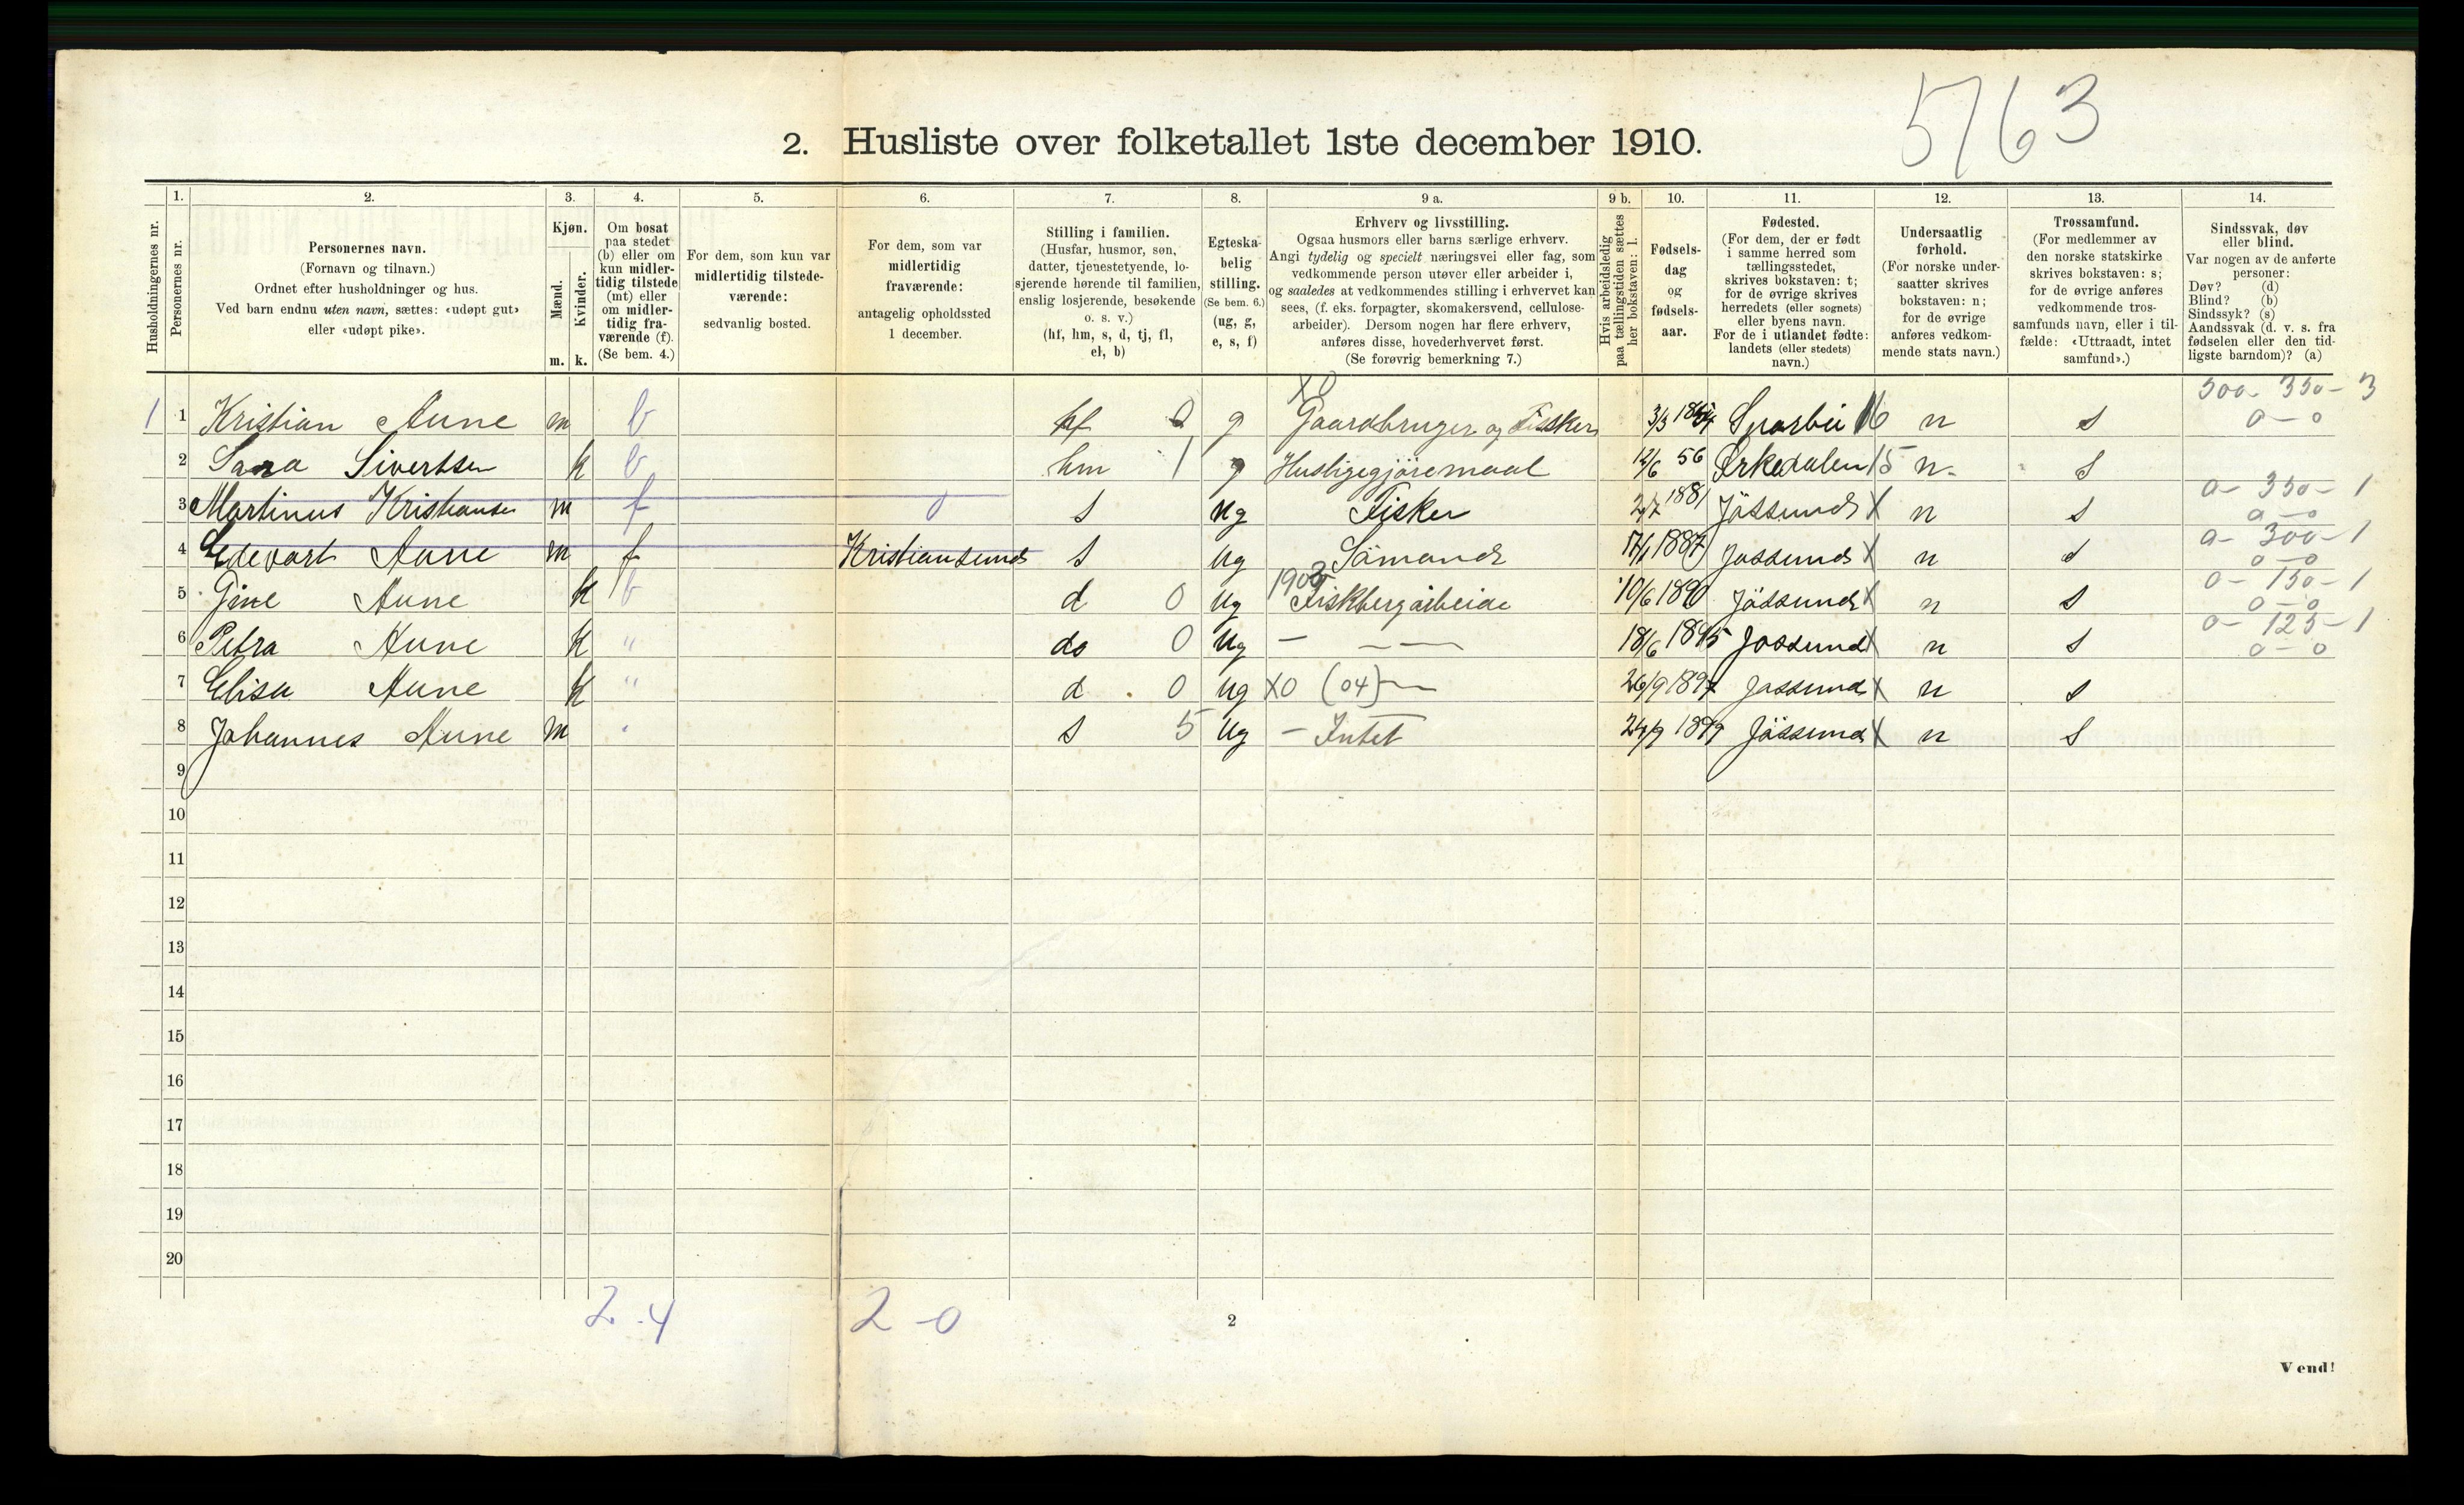 5763
2. Husliste over folketallet 1ste december 1910.
1. 2. 3. 4. 5. 6. 7. 8. 9 a. 9 b. 10. 11. 12. 13. 14.
Husholdningernes nr.
Personernes nr.
Personernes navn.
(Fornavn og tilnavn.)
Ordnet efter husholdninger og hus.
Ved barn endnu uten navn, sættes: «udøpt gut»
eller «udøpt pike».
Kjøn.
Mænd.
Kvinder.
m. k.
Om bosat
paa stedet
(b) eller om
kun midler-
tidig tilstede
(mt) eller
om midler-
tidig fra-
værende (f).
(Se bem. 4.)
For dem, som kun var
midlertidig tilstede-
værende:
sedvanlig bosted.
For dem, som var
midlertidig
fraværende:
antagelig opholdssted
1 december.
Stilling i familien.
(Husfar, husmor, søn,
datter, tjenestetyende, lo-
sjerende hørende til familien,
enslig losjerende, besøkende
o. s. v.)
(hf, hm, s, d, tj, fl,
el, b)
Egteska-
belig
stilling.
(Se bem. 6.)
(ug, g,
e, s, f)
Erhverv og livsstilling.
Ogsaa husmors eller barns særlige erhverv.
Angi tydelig og specielt næringsvei eller fag, som
vedkommende person utøver eller arbeider i,
og saaledes at vedkommendes stilling i erhvervet kan
sees, (f. eks. forpagter, skomakersvend, cellulose-
arbeider). Dersom nogen har flere erhverv,
anføres disse, hovederhvervet først.
(Se forøvrig bemerkning 7.)
Hvis arbeidsledig
paa tællingstiden sættes
her bokstaven: l.
Fødsels-
dag
og
fødsels-
aar.
Fødested.
(For dem, der er født
i samme herred som
tællingsstedet,
skrives bokstaven: t;
for de øvrige skrives
herredets (eller sognets)
eller byens navn.
For de i utlandet fødte:
landets (eller stedets)
navn.)
Undersaatlig
forhold.
(For norske under-
saatter skrives
bokstaven: n;
for de øvrige
anføres vedkom-
mende stats navn.)
Trossamfund.
(For medlemmer av
den norske statskirke
skrives bokstaven: s;
for de øvrige anføres
vedkommende tros-
samfunds navn, eller i til-
fælde: «Uttraadt, intet
samfund».)
Sindssvak, døv
eller blind.
Var nogen av de anførte
personer:
Døv? (d)
Blind? (b)
Sindssyk? (s)
Aandssvak (d. v. s. fra
fødselen eller den tid-
ligste barndom)? (a)
X0 500 - 350 - 3
1 1 Kristian Aune m b hf g Gaardbruger og Fisker 3/3 18 16 n s 0 - 0
2 Sara Sivertsen k b hm 1 g Husligegjøremaal 12/6 56 Ørkedalen 15 n. s
0 - 350 - 1
3 Martinus Kristiansen m f 0 s ug Fisker 2/7 1881 Jössund X n s 0 - 0
0 - 300 - 1
4 Edevart Aune m f Kristiansund s ug Sömand 17/1 1887 Jossund X n s 0 - 0
0 - 150 - 1
5 Gine Aune k b d 0 ug Fiskbergarbeide 10/6 1890 Jössund X n s 0 - 0
0 - 125 - 1
6 Petra Aune k " do 0 ug — — 18/6 1895 Jossund X n s 0 - 0
7 Elisa Aune k " d 0 ug X0 (04) — 26/9 1897 Jassund X n s
8 Johannes Aune m " s 5 ug - Intet 24/9 1899 Jössund X n s
9
10
11
12
13
14
15
16
17
18
19
20
2 - 4 2 - 0
2
Vend!